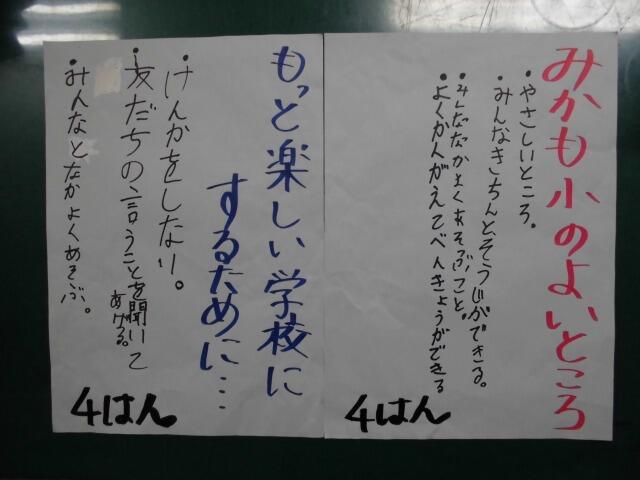 みかも小のよいところ
・やさしいところ。
・みんなきちんとそうじができる。
・みんななかよくあそぶこと。
・よくかんがえてべんきょうができる
4はん
もっと楽しい学校に
するために…
・けんかをしない。
・友だちの言うことを聞いて
あげる。
・みんなとなかよくあそぶ。
4はん